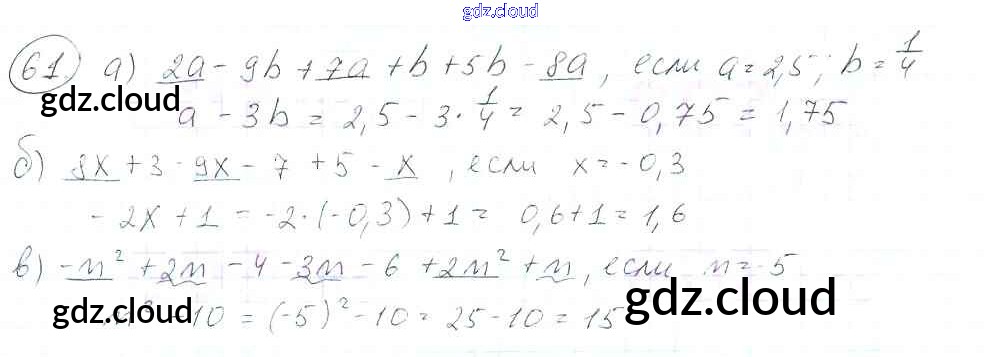 gdz.cloud
61. а) 2a - 9b + 7a + b + 5b - 8a, если a = 2,5; b = 1/4
gdz.cloud
a - 3b = 2,5 - 3 · 1/4 = 2,5 - 0,75 = 1,75
б) 8x + 3 - 9x - 7 + 5 - x, если x = -0,3
- 2x + 1 = -2 · (-0,3) + 1 = 0,6 + 1 = 1,6
в) -n² + 2n - 4 - 3n - 6 + 2n² + n, если n = -5
n² - 10 = (-5)² - 10 = 25 - 10 = 15
gdz.cloud
gdz.cloud